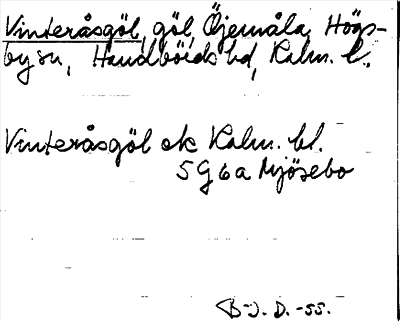 Vinteråsgöl, göl, Öjemåla, Högs-
bysn, Handbörds hd, Kalm. l.
Vinteråsgöl ek Kalm. bl.
5G6a Mjösebo
B-J. D. -55.